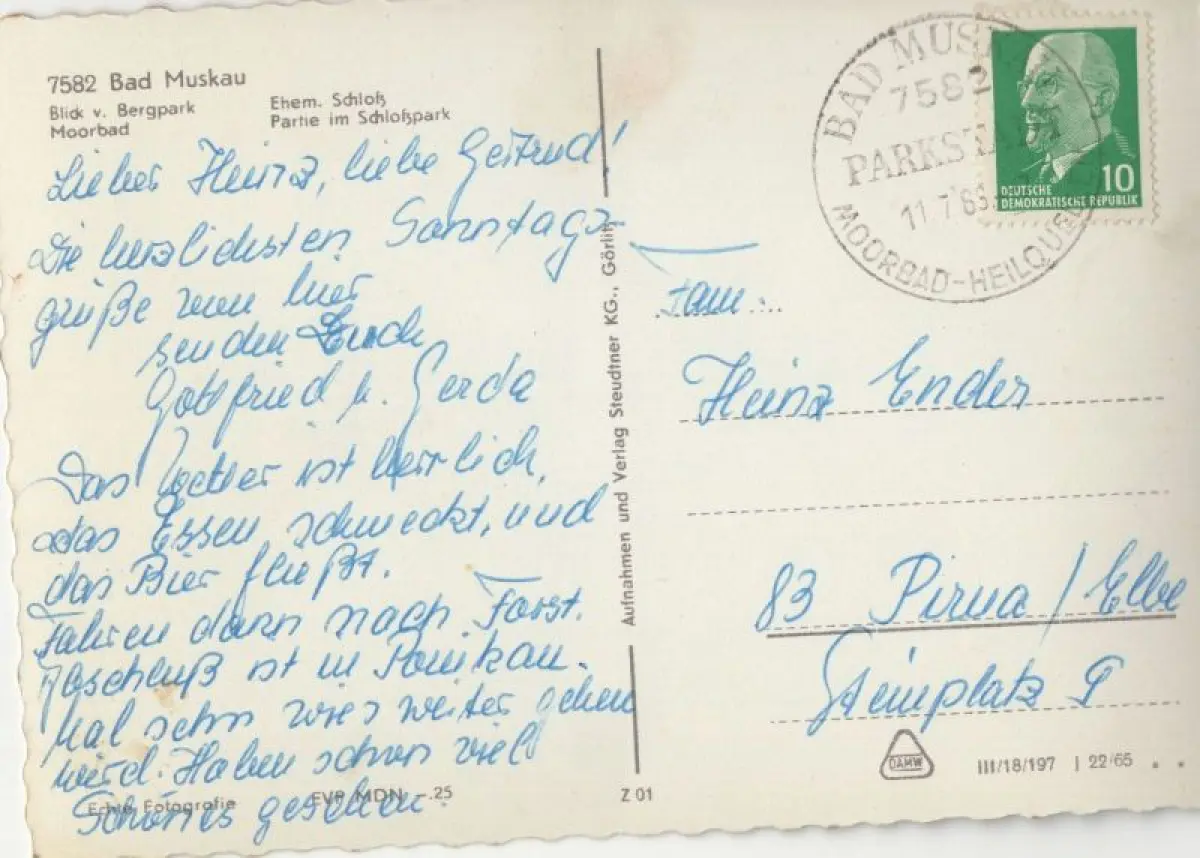 7582 Bad Muskau
Blick v. Bergpark
Moorbad
Ehem. Schloß
Partie im Schloßpark
Lieber Heinz, liebe Gertrud!
Die herzlichsten Sonntags-
grüße von hier
senden Euch
Gottfried u. Gerda
Das Wetter ist herrlich,
das Essen schmeckt, und
das Bier fließt.
Fahren dann nach Forst.
Abschluß ist in
Mal sehn wies weiter gehen
wird. Haben schon viel
Schönes gesehen.
Echte Fotografie
EVP MDN -.25
Z 01
Aufnahmen und Verlag Steudtner KG., Görlitz
BAD MUSK
7582
PARKS
11.7.65
MOORBAD-HEILQUEL
10
DEUTSCHE
DEMOKRATISCHE REPUBLIK
Fam.:
Heinz Ender
83 Pirna/Elbe
Steinplatz
DAMW
III/18/197 | 22/65